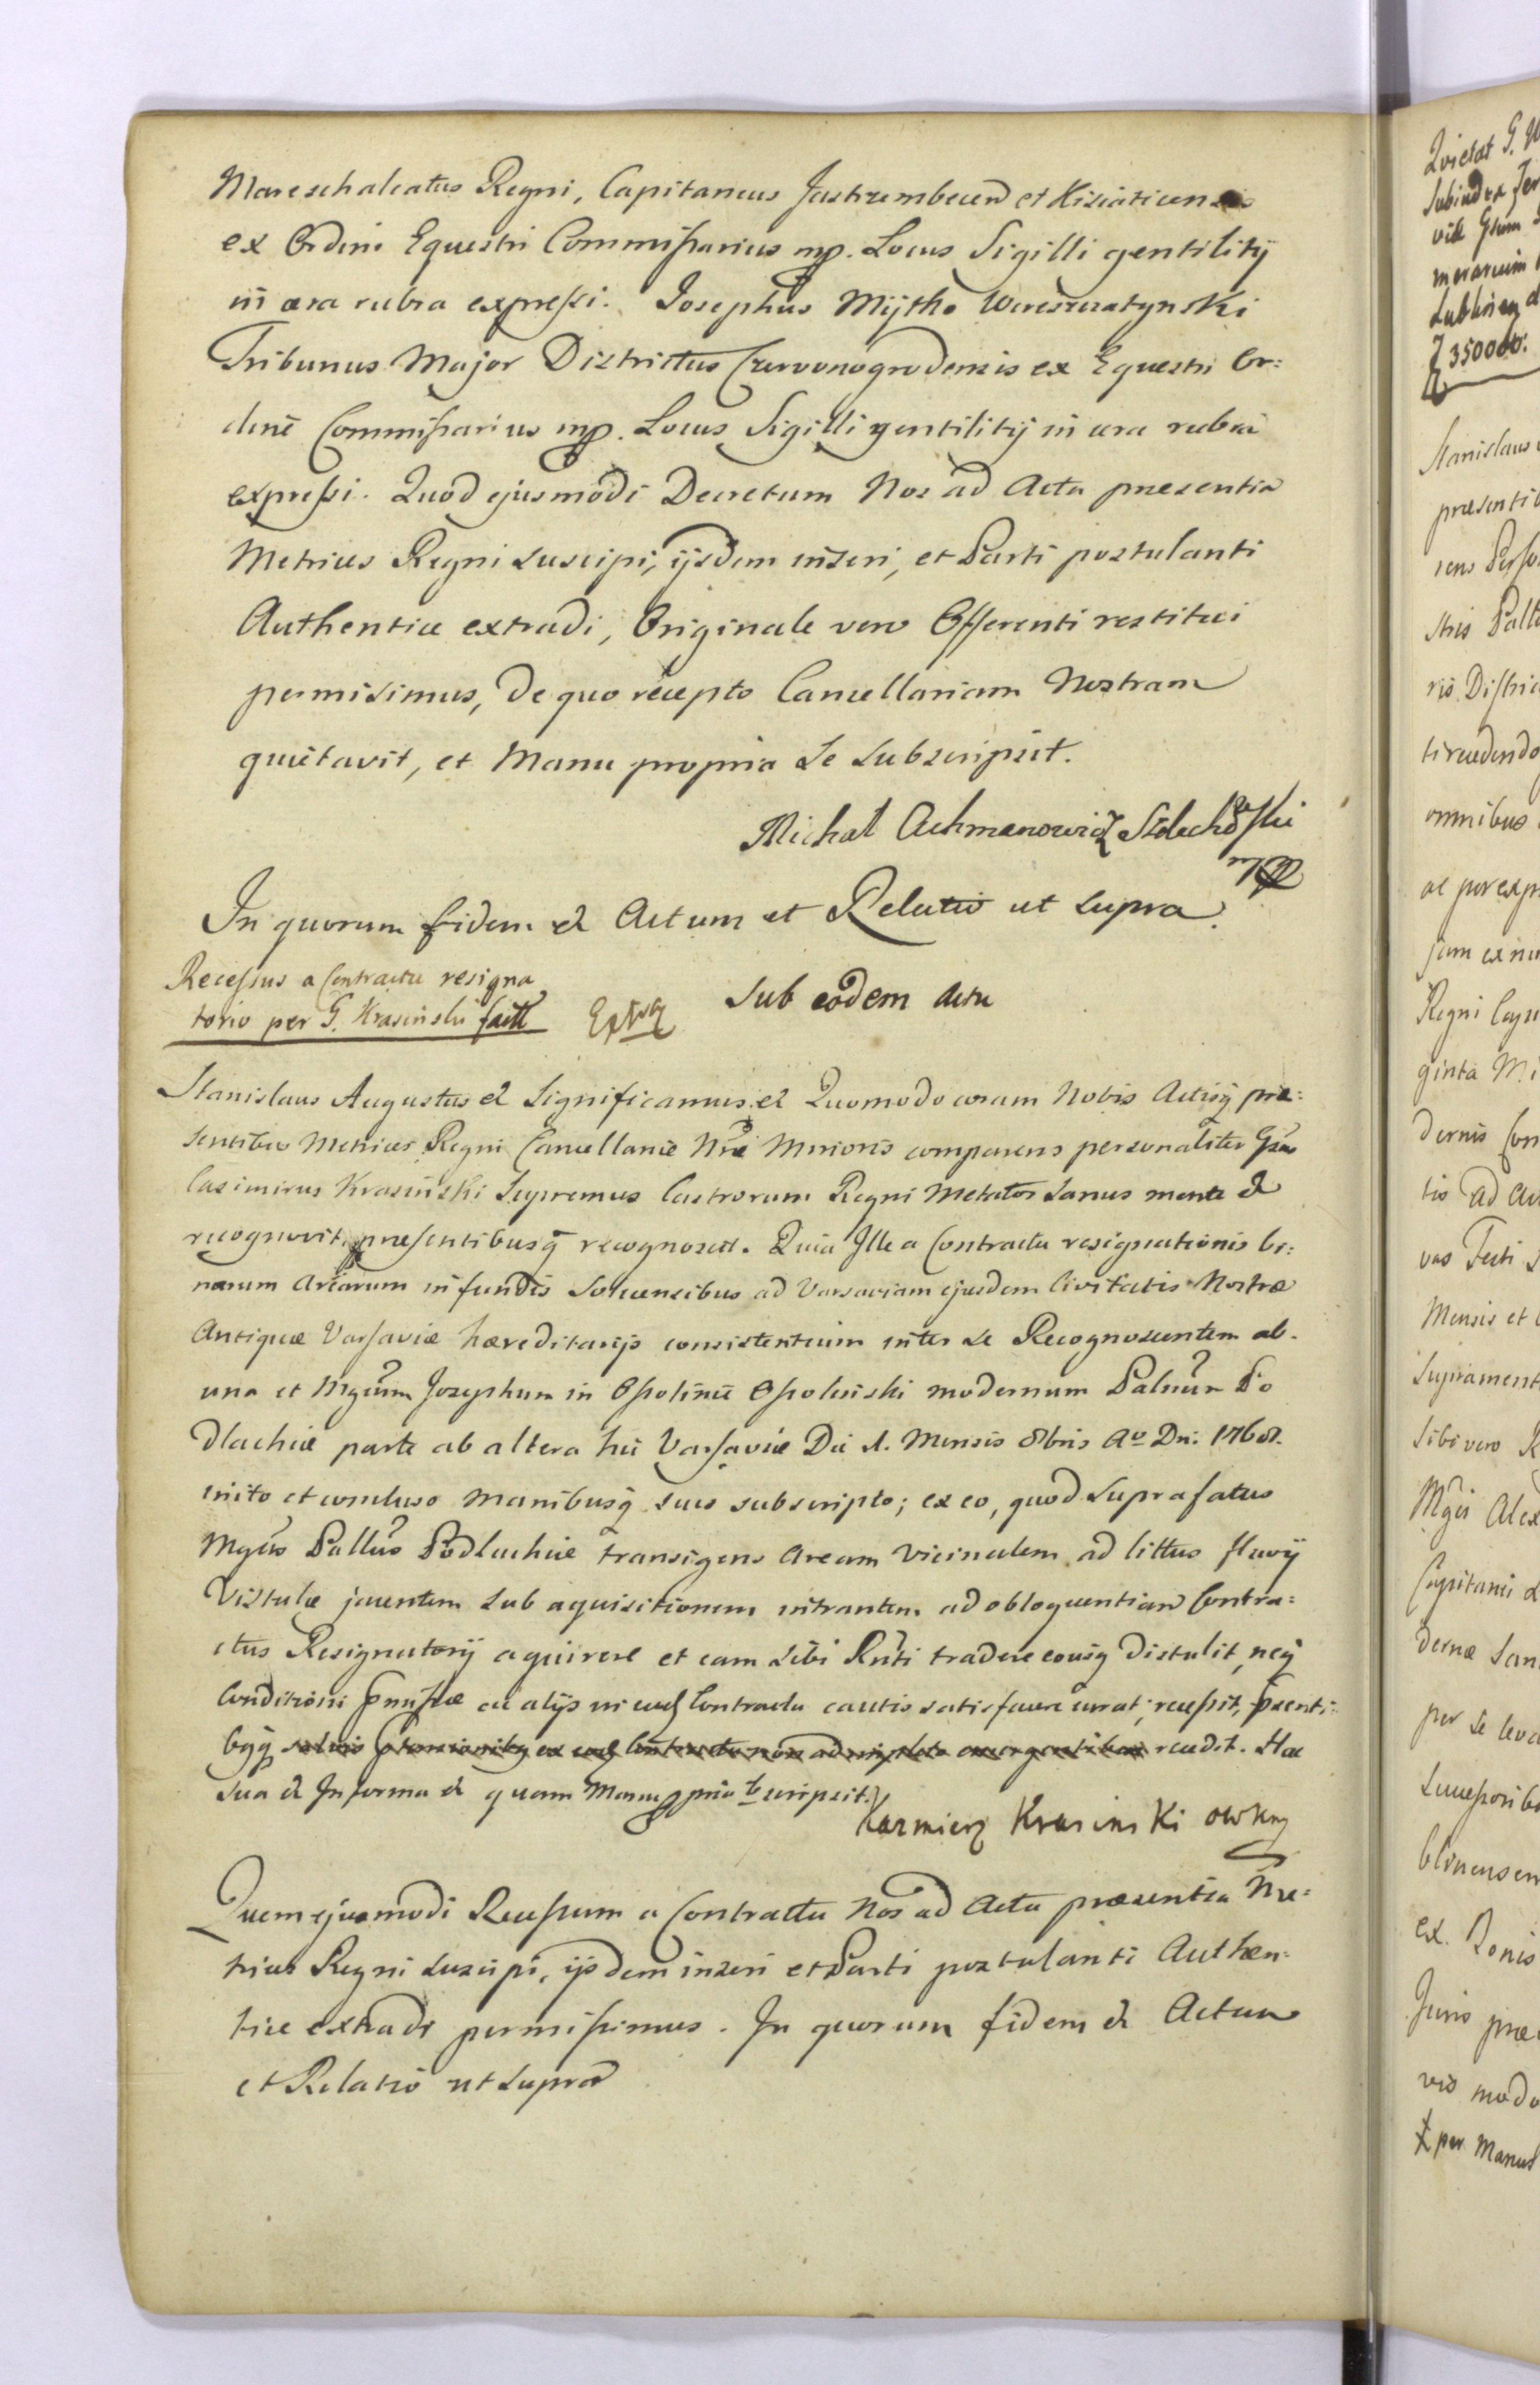 Mareschalcatus Regni, Capitaneus Jastrzembecen et Kisiaticensis
ex Ordine Equestri Commissarius mp. Locus Sigilli gentilitij
in cera rubra expressi. Josephus Mijtko Wereszczatynski
Tribunus Major Districtus Czerwonogrodensis ex Equestri Or:
dine Commissarius mp. Locus Sigilli gentilitij in cera rubra
expressi. Quod ejusmodi Decretum Nos ad Acta præsentia
Metrices Regni suscipi, ijsdem inseri, et Parti postulanti
Authentice extradi, Originale vero Offerenti restitui
permisimus, de quo recepto Cancellariam Nostram
quietavit, et Manu propria se subscripsit.
Michał Achmanowicz
mp
In quorum fidem et Actum et Relatio ut supra.
Recessus a Contractu resigna
torio per G. Krasinski factt
Sub eodem Actu
Stanislaus Augustus et Significamus et Quomodo coram Nobis Actisq præ:
sentibus Metrices Regni Cancellariæ Nræ Minoris comparens personaliter Gsus
Casimirus Krasiński Supremus Castrorum Regni Metator sanus mente et
recognovit, præsentibusq recognoscit. Quia Ille a Contractu resignationis bi:
narum Arearum in fundis Solecensibus ad Varsaviam ejusdem Civitatis Nostræ
Antiquæ Varsaviæ hæreditarijs consistentium inter se Recognoscentem ab
una et Mgcum Josephum in Opolinie Opoliński modernum Palnum Po
dlachiæ parte ab altera hic Varsaviæ Die 1. Mensis 8bris Ao Dni 1768.
inito et concluso Manibusq suis subscripto; ex eo, quod suprafatus
Mgcus Pallnus Podlachiæ transigens Aream vicinalem ad littus fluvij
Vistulæ jacentem sub aquisitionem intrantem ad obloquentiam Contra:
ctus Resignatorij aquirere et eam sibi Rnti tradere eousq distulit, neq
Conditioni pmissæ ac alijs in eod Contractu cautis satisfacere curat, recessit, psenti:
bqq salvis ex eod Contractu non adimpleto emergentibus recedit. Hac
sua et In forma et quam Manu ppria bscripsit.
Kazmierz Krasinski OWKny
Quemejusmodi Recessum a Contractu Nos ad Acta præsentia Me:
trices Regni suscipi, ijsdem inseri et Parti postulanti Authen:
tice extradi permissimus. In quorum fidem et Actum
et Relatio ut supra
Quietat G.
vill Gsum
350000.
Stanislaus
præsentib
ris Distric
omnibus
Regni Cap
ginta Mi
dernis Con
tis ad Au
Mensis et
Suprament
sibi vero R
Mgci Alex
Capitanei
dernæ San
per se leva
Successorib
blinensem
ex
Juris præ
vis modo
per Manus